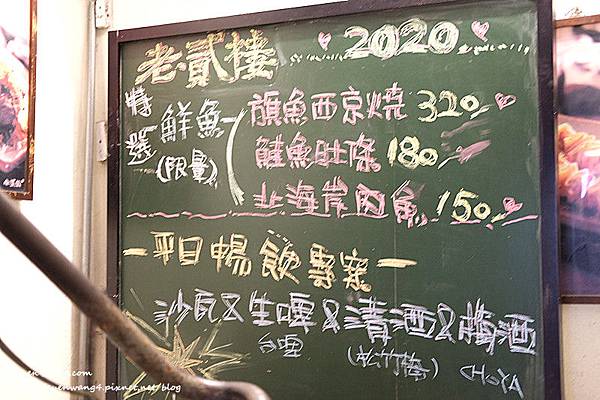 老貳樓 2020
特選 鮮魚 旗魚西京燒 320
(限量) 鮭魚肚條 180
北海岸肉魚 150
平日暢飲專案
沙瓦&生啤&清酒&梅酒
台啤 (松竹梅) CHOYA